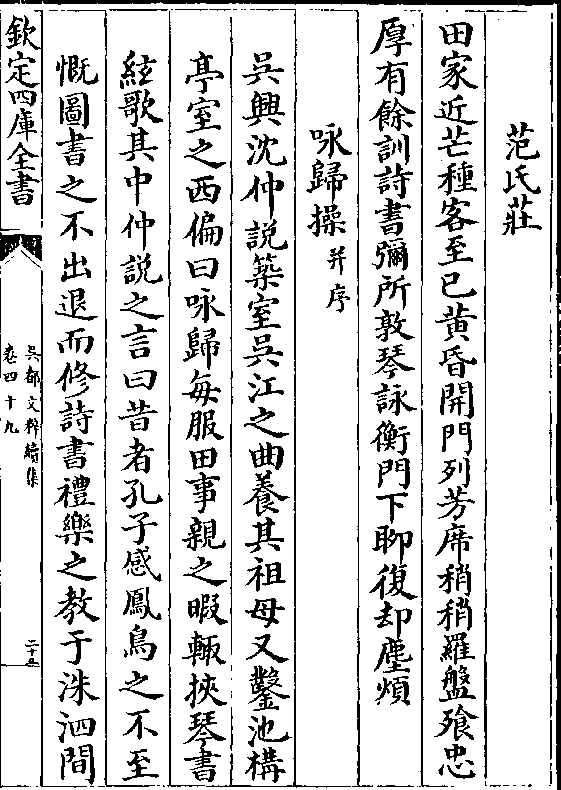 范氏莊
田家近芒種客至已黄昏開門列芳席稍稍羅盤飱忠
厚有餘訓詩書彌所敦琴詠衡門下聊復却塵煩
咏歸操并序
吳興沈仲説築室吳江之曲養其祖母又鑿池構
亭室之西偏曰咏歸每服田事親之暇輙挾琴書
絃歌其中仲説之言曰昔者孔子感鳳鳥之不至
慨圖書之不出退而修詩書禮樂之教于洙泗間
欽定四庫全書
吳都文粹續集
卷四十九
二十五